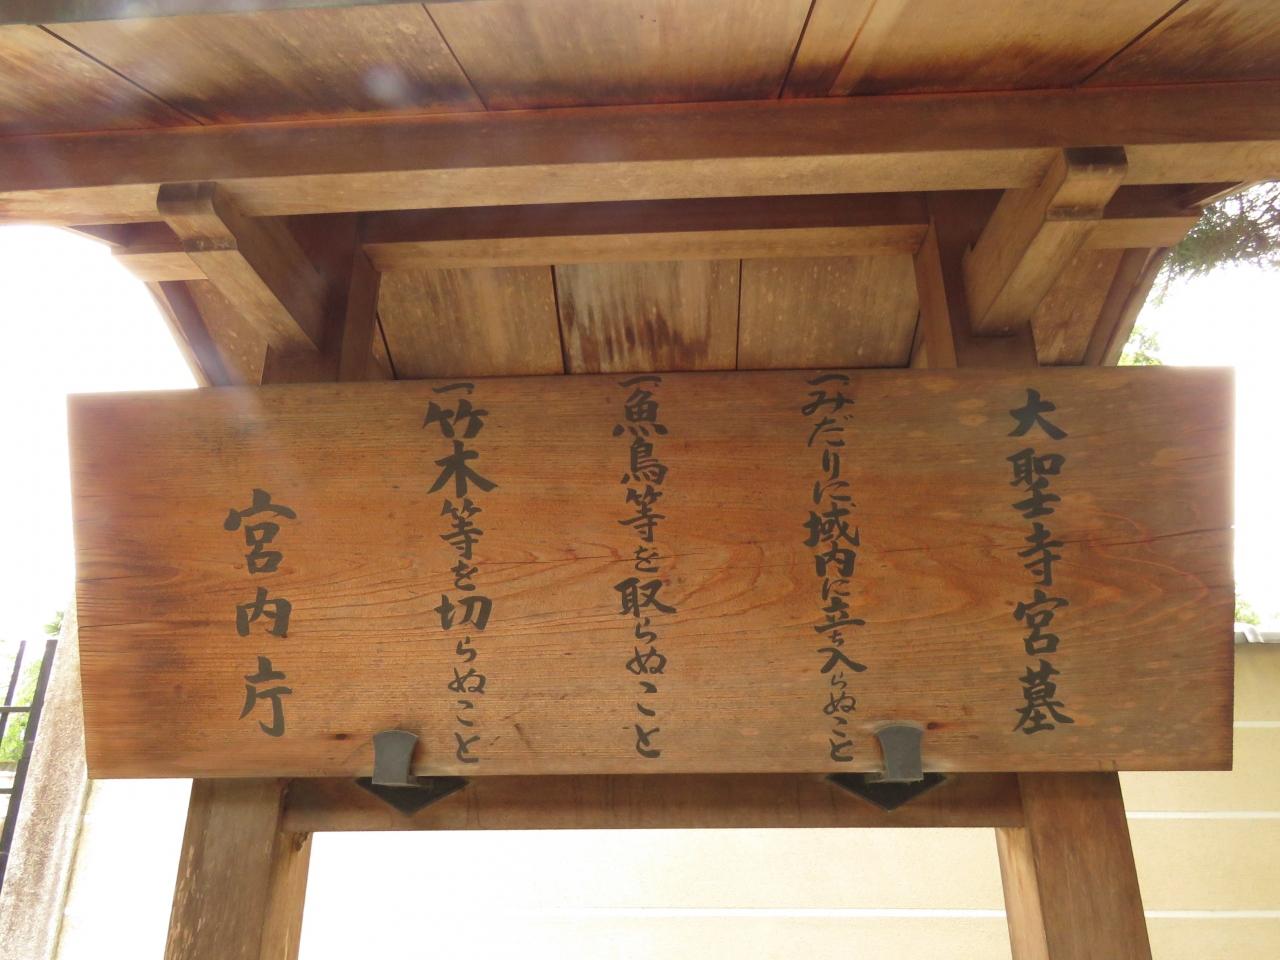 大聖寺宮墓
一みだりに域内に立ち入らぬこと
一魚鳥等を取らぬこと
一竹木等を切らぬこと
宮内庁